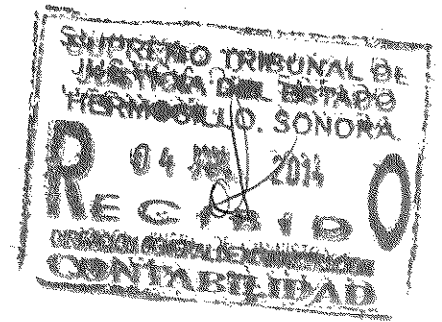 SUPREMO TRIBUNAL DE
JUSTICIA DEL ESTADO
HERMOSILLO, SONORA
04 2014
RECIBIDO
CONTABILIDAD